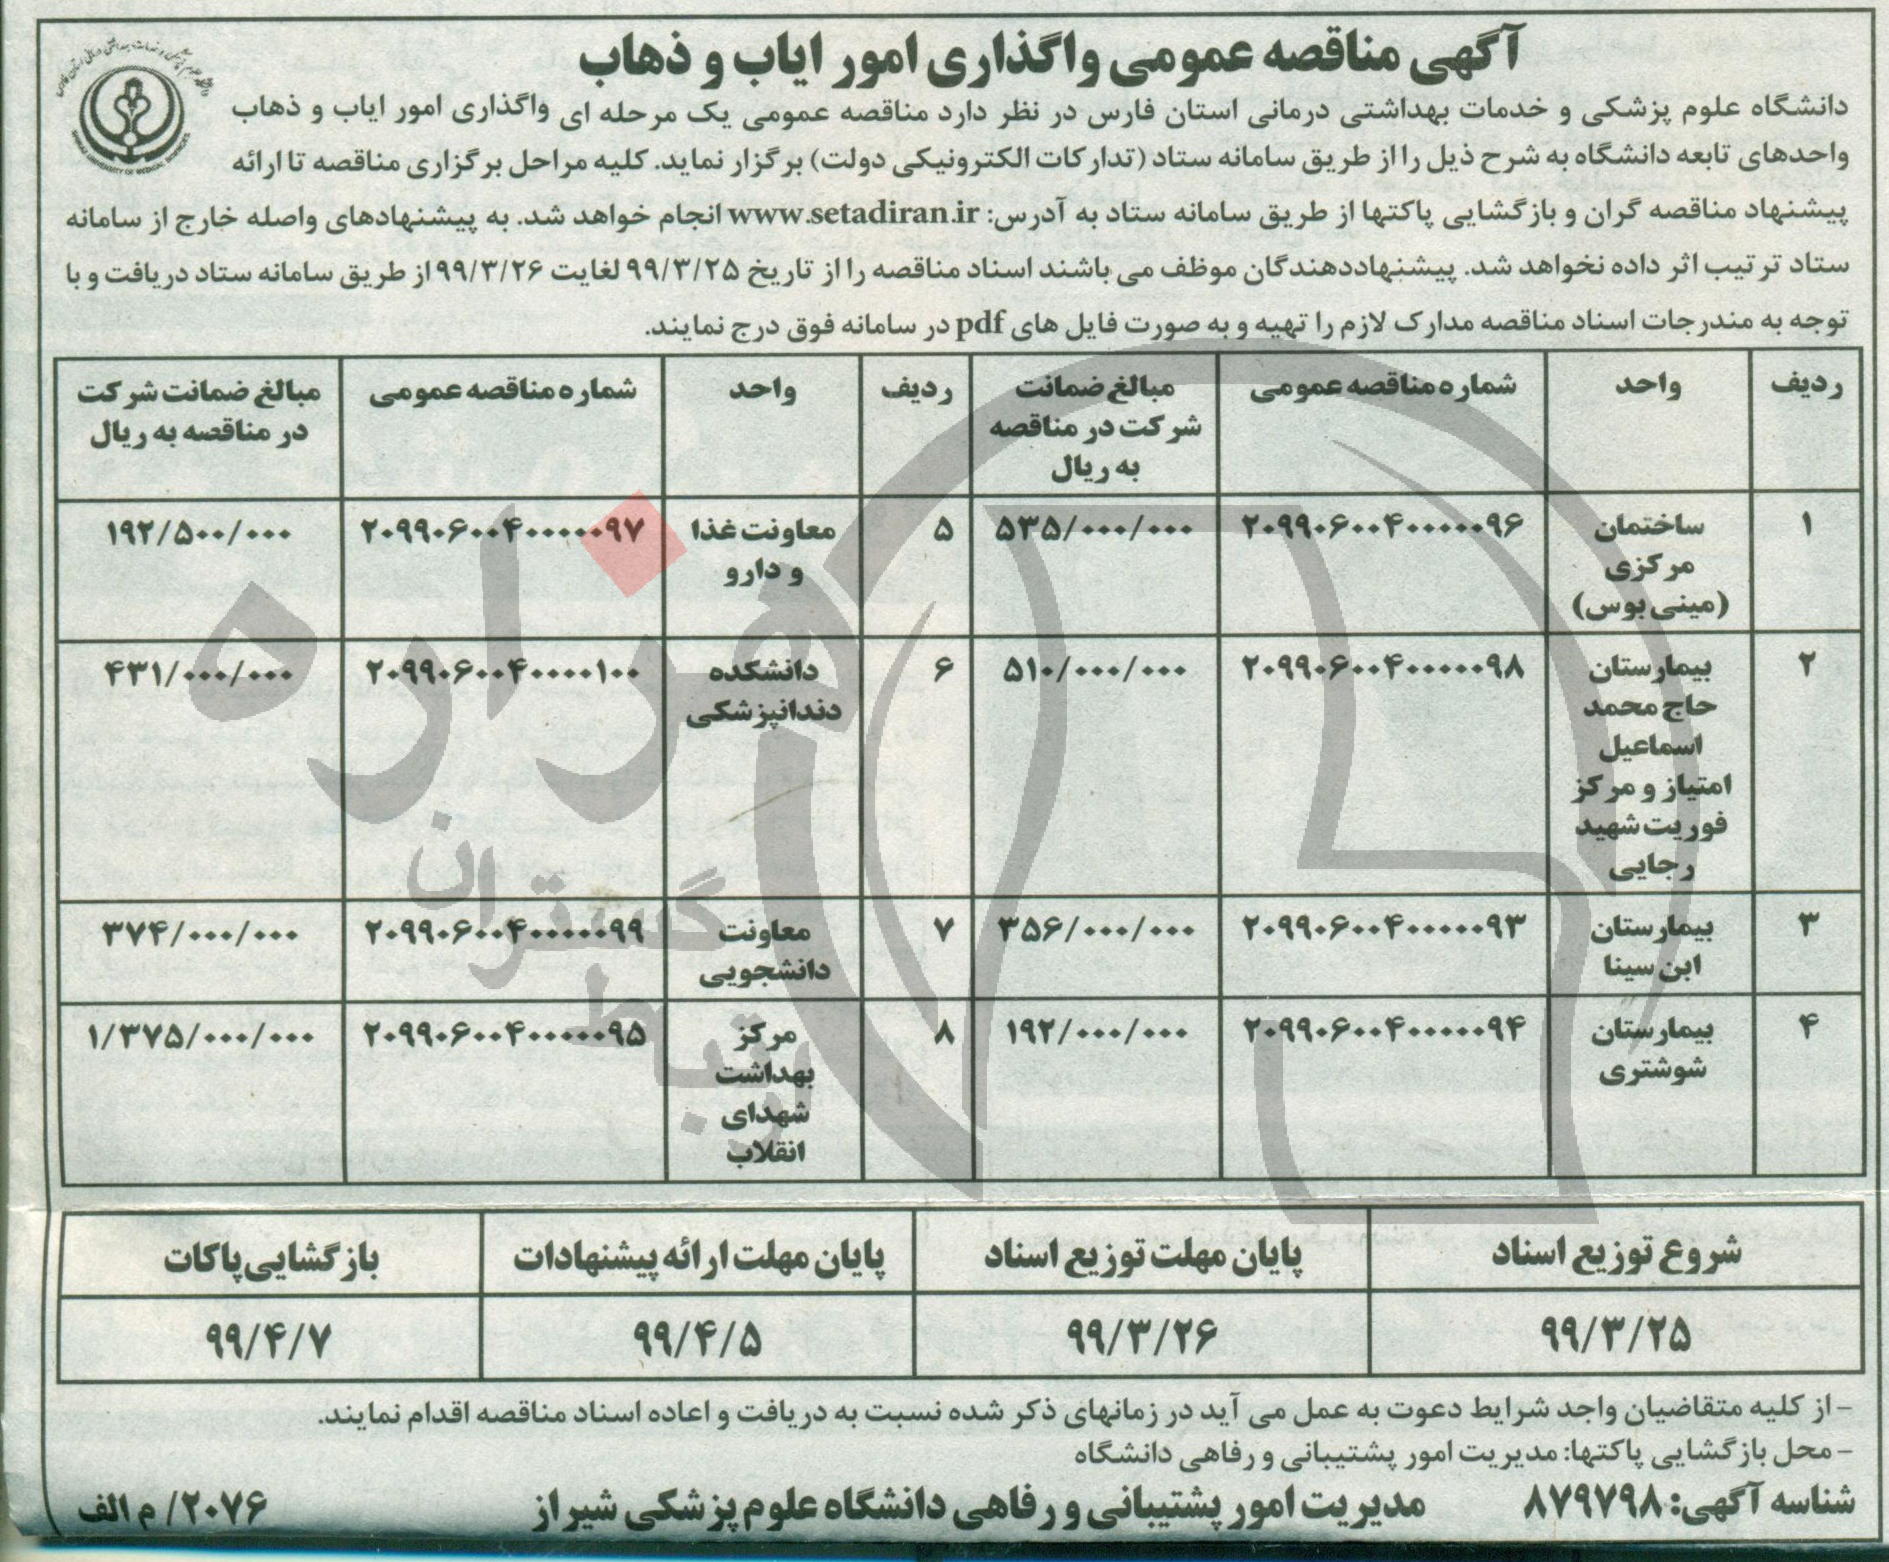 آگهی مناقصه عمومی واگذاری امور ایاب و ذهاب
دانشگاه علوم پزشکی و خدمات بهداشتی درمانی استان فارس در نظر دارد مناقصه عمومی یک مرحله ای واگذاری امور ایاب و ذهاب
واحدهای تابعه دانشگاه به شرح ذیل را از طریق سامانه ستاد (تدارکات الکترونیکی دولت) برگزار نماید. کلیه مراحل برگزاری مناقصه تا ارائه
پیشنهاد مناقصه گران و بازگشایی پاکتها از طریق سامانه ستاد به آدرس: www.setadiran.ir انجام خواهد شد. به پیشنهادهای واصله خارج از سامانه
ستاد ترتیب اثر داده نخواهد شد. پیشنهاددهندگان موظف می باشند اسناد مناقصه را از تاریخ ۹۹/۳/۲۵ لغایت ۹۹/۳/۲۶ از طریق سامانه ستاد دریافت و با
توجه به مندرجات اسناد مناقصه مدارک لازم را تهیه و به صورت فایل های pdf در سامانه فوق درج نمایند.
ردیف واحد شماره مناقصه عمومی مبالغ ضمانت شرکت در مناقصه به ریال ردیف واحد شماره مناقصه عمومی مبالغ ضمانت شرکت در مناقصه به ریال
۱ ساختمان مرکزی (مینی بوس) ۲۰۹۹۰۶۰۰۴۰۰۰۰۰۹۶ ۵۳۵/۰۰۰/۰۰۰ ۵ معاونت غذا و دارو ۲۰۹۹۰۶۰۰۴۰۰۰۰۰۹۷ ۱۹۲/۵۰۰/۰۰۰
۲ بیمارستان حاج محمد اسماعیل امتیاز و مرکز فوریت شهید رجایی ۲۰۹۹۰۶۰۰۴۰۰۰۰۰۹۸ ۵۱۰/۰۰۰/۰۰۰ ۶ دانشکده دندانپزشکی ۲۰۹۹۰۶۰۰۴۰۰۰۰۱۰۰ ۴۳۱/۰۰۰/۰۰۰
۳ بیمارستان ابن سینا ۲۰۹۹۰۶۰۰۴۰۰۰۰۰۹۳ ۳۵۶/۰۰۰/۰۰۰ ۷ معاونت دانشجویی ۲۰۹۹۰۶۰۰۴۰۰۰۰۰۹۹ ۳۷۴/۰۰۰/۰۰۰
۴ بیمارستان شوشتری ۲۰۹۹۰۶۰۰۴۰۰۰۰۰۹۴ ۱۹۲/۰۰۰/۰۰۰ ۸ مرکز بهداشت شهدای انقلاب ۲۰۹۹۰۶۰۰۴۰۰۰۰۰۹۵ ۱/۳۷۵/۰۰۰/۰۰۰
شروع توزیع اسناد پایان مهلت توزیع اسناد پایان مهلت ارائه پیشنهادات بازگشایی پاکات
۹۹/۳/۲۵ ۹۹/۳/۲۶ ۹۹/۴/۵ ۹۹/۴/۷
- از کلیه متقاضیان واجد شرایط دعوت به عمل می آید در زمانهای ذکر شده نسبت به دریافت و اعاده اسناد مناقصه اقدام نمایند.
- محل بازگشایی پاکتها: مدیریت امور پشتیبانی و رفاهی دانشگاه
شناسه آگهی: ۸۷۹۷۹۸ مدیریت امور پشتیبانی و رفاهی دانشگاه علوم پزشکی شیراز ۲۰۷۶/ م الف
هزاره
گستران
ارتباط